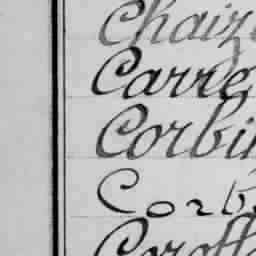 Chaiz
Carre
Corbi
Corb
Coroff